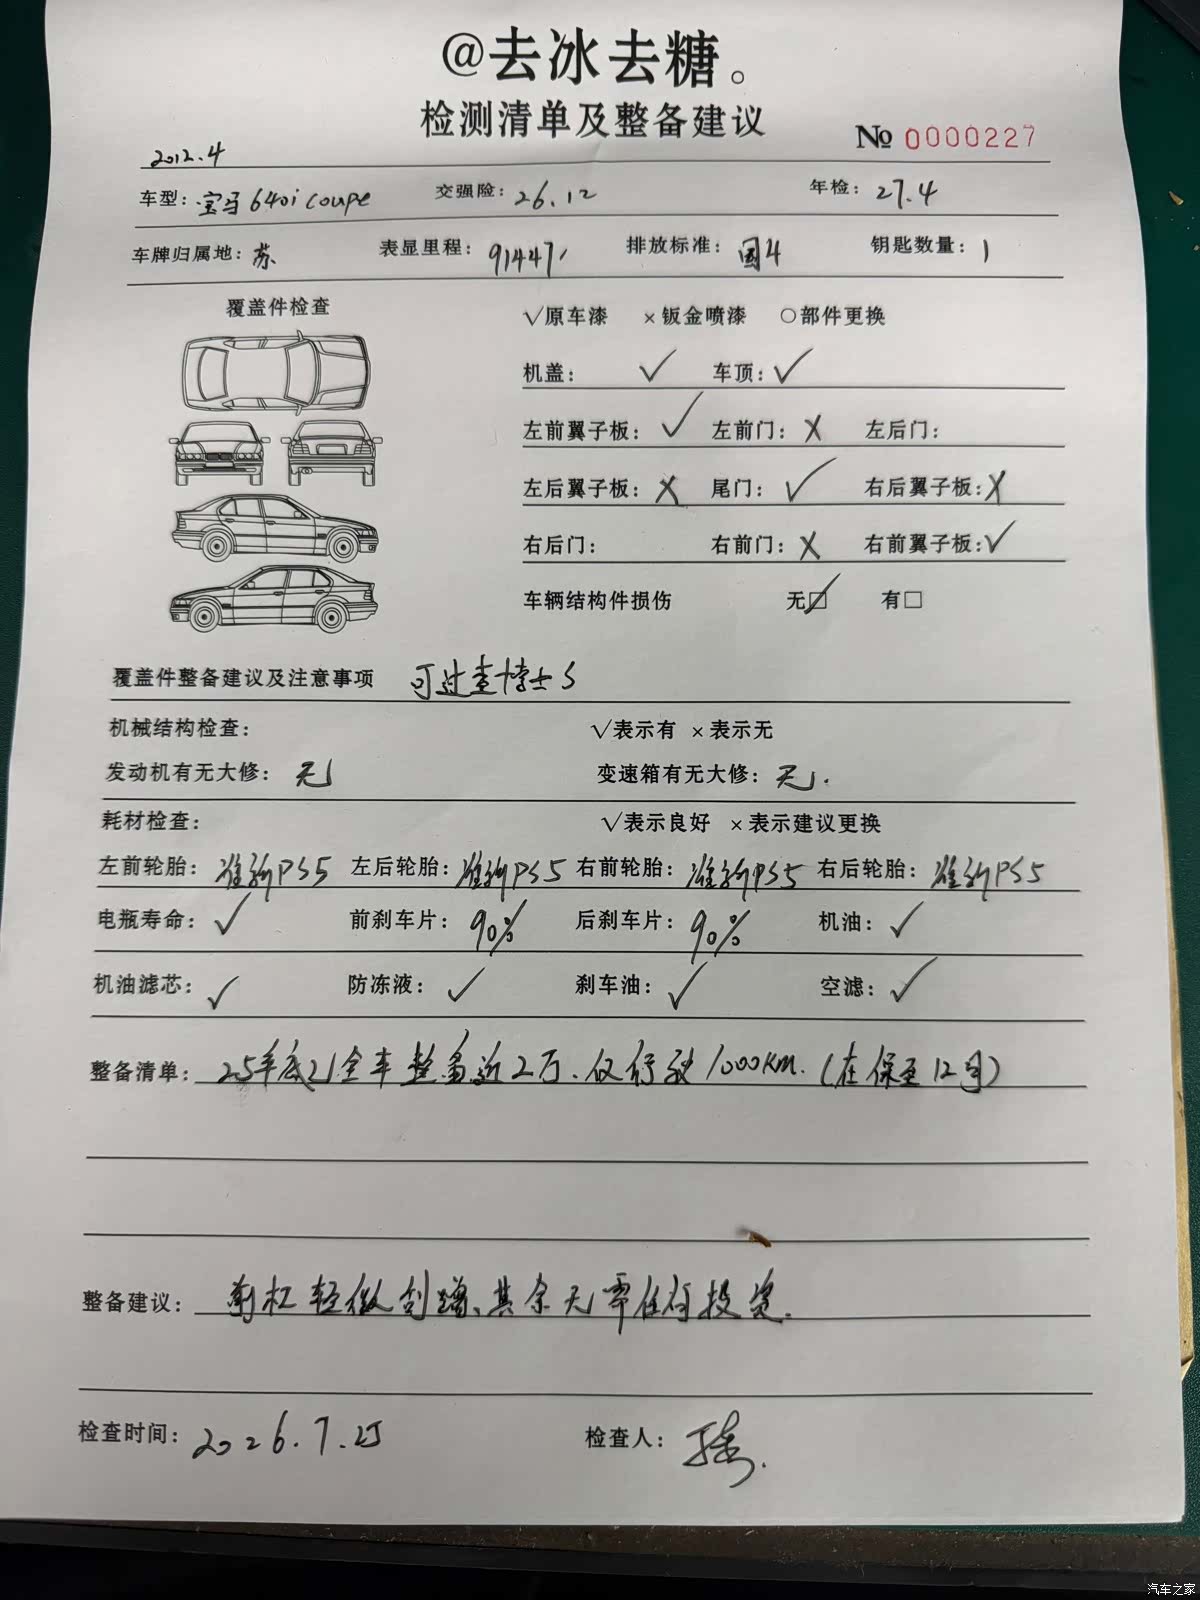 @去冰去糖。
检测清单及整备建议
№ 0000227
2012.4
车型: 宝马640i coupe 交强险: 26.12 年检: 27.4
车牌归属地: 苏 表显里程: 91447 排放标准: 国4 钥匙数量: 1
覆盖件检查
√原车漆 ×钣金喷漆 ○部件更换
机盖: √ 车顶: √
左前翼子板: √ 左前门: × 左后门:
左后翼子板: × 尾门: √ 右后翼子板: ×
右后门: 右前门: × 右前翼子板: √
车辆结构件损伤 无☑ 有□
覆盖件整备建议及注意事项 可过查博士S
机械结构检查: √表示有 ×表示无
发动机有无大修: 无 变速箱有无大修: 无.
耗材检查: √表示良好 ×表示建议更换
左前轮胎: 准新PS5 左后轮胎: 准新PS5 右前轮胎: 准新PS5 右后轮胎: 准新PS5
电瓶寿命: √ 前刹车片: 90% 后刹车片: 90% 机油: √
机油滤芯: √ 防冻液: √ 刹车油: √ 空滤: √
整备清单: 25年底21全车整备近2万.仅行驶1000km.(在保至12月)
整备建议: 前杠轻微剐蹭、其余无需任何投资.
检查时间: 2026.7.25
检查人:
汽车之家